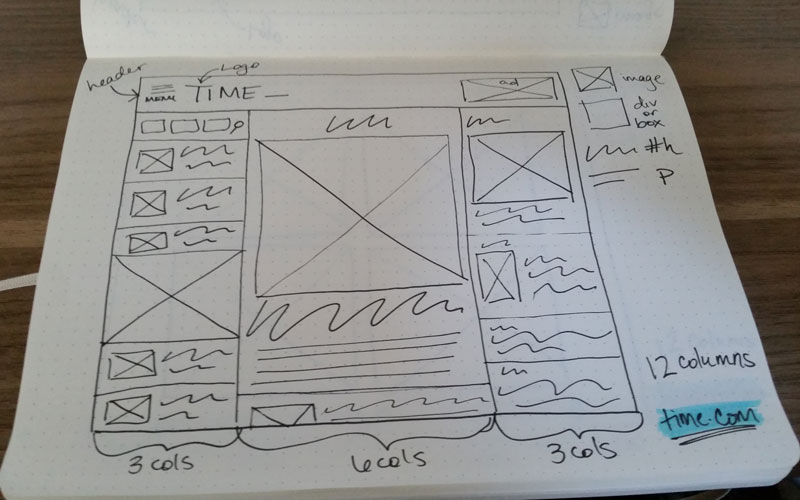 header
Logo
MENU
TIME
ad
image
div
or
box
#h
P
12 columns
time.com
3 cols
6 cols
3 cols